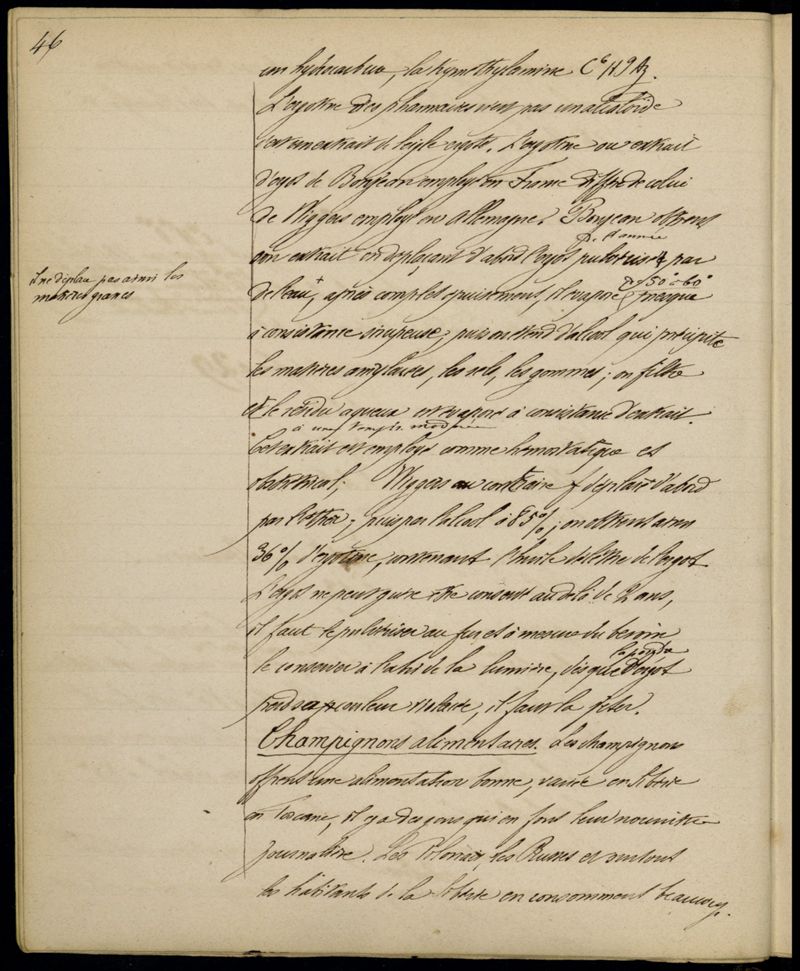 46
un hydrocarbure, la trymethylamine C⁶H⁹Az.
L'ergotine des pharmacies n'est pas un alcaloïde
c'est un extrait de seigle ergoté. L'ergotine ou extrait
d'ergot de Bonjean employé en France diffère de celui
de Wiggers employé en Allemagne. Bonjean obtient
son extrait en déplaçant d'abord l'ergot pulvérisé par
de l'eau +, après complet épuisement, il évapore presque
à 50° à 60°
il ne déplace pas ainsi les
matières grasses
à consistance sirupeuse, puis on étend d'alcool qui précipite
les matières amylacées, les sels, les gommes; on filtre
et le résidu aqueux est évaporé à consistance d'extrait.
à une temp. modérée
Cet extrait est employé comme hémostatique et
obstétrical; Wiggers au contraire déplace d'abord
par l'éther, puis par l'alcool à 85%; on obtient ainsi
36% d'ergotine, contenant l'huile délétère de l'ergot
L'ergot ne peut guère être conservé au delà de 2 ans,
il faut le pulvériser au fur et à mesure du besoin
le conserver à l'abri de la lumière, dès que l'ergot
la poudre
prend sa couleur violacée, il faut la jeter.
Champignons alimentaires. Les champignons
offrent une alimentation bonne, variée en Sibérie
en Toscane, il y a des gens qui en font leur nourriture
journalière. Les Polonais, les Russes et surtout
les habitants de la Sibérie en consomment beaucoup.